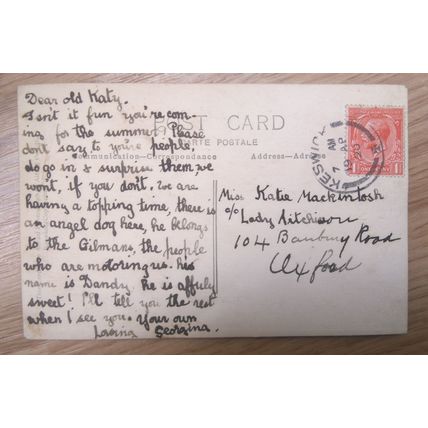 Dear old Katy.
Isn't it fun you're com-
ing for the summer. Please
don't say to youre people,
do go in & surprise them we
won't, if you don't. we are
having a topping time, there is
an angel dog here, he belongs
to the Gilmans, the people
who are motoring us. his
name is Dandy. he is affuly
sweet! I'll tell you the rest
when I see you. Your own
Loving Georgina.
POST CARD
CARTE POSTALE
Communication—Correspondance
Address—Adresse
KESWICK
AM
19 AP
20
Miss Katie Mackintosh
c/o Lady Aitchison
104 Banbury Road
Oxford